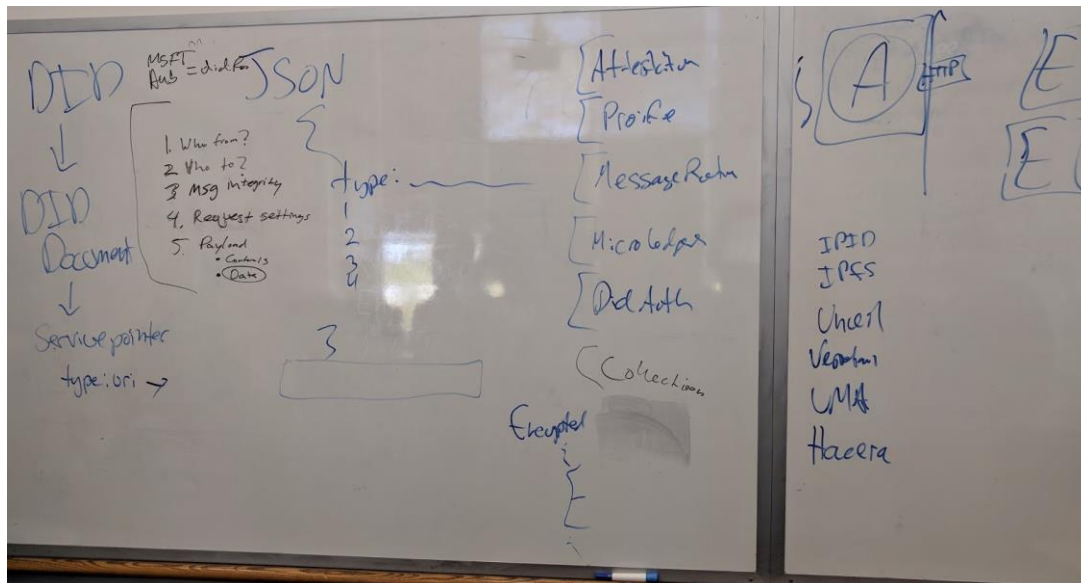 DID
DID
Document
Service pointer
type: uri →
MSFT
= did:
1. Who from?
2. Who to?
3. Msg integrity
4. Request settings
5. Payload
• Controls
• Data
JSON
{
type:
1
2
3
4
}
[Attestation
[Profile
[Message
[Microledger
[Did Auth
[Collections
Encrypted
A
HTTP
E
E
IPID
IPFS
UMA
Hacera